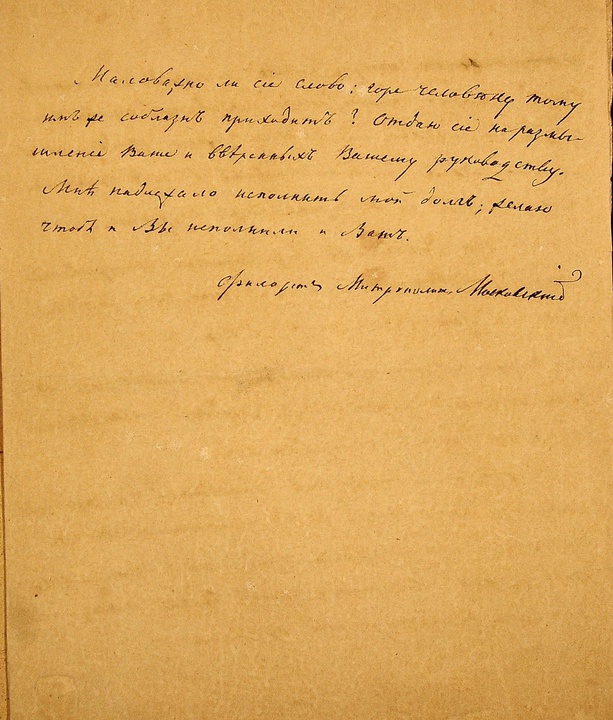 Маловажно ли сіе слово: горе человѣку тому
имъ же соблазнъ приходитъ? Отдаю сіе на размы-
шленіе Ваше и ввѣренныхъ Вашему руководству.
Мнѣ надлежало исполнить мой долгъ; желаю
чтобъ и Вы исполнили и Вашъ.
Филаретъ Митрополитъ Московскій